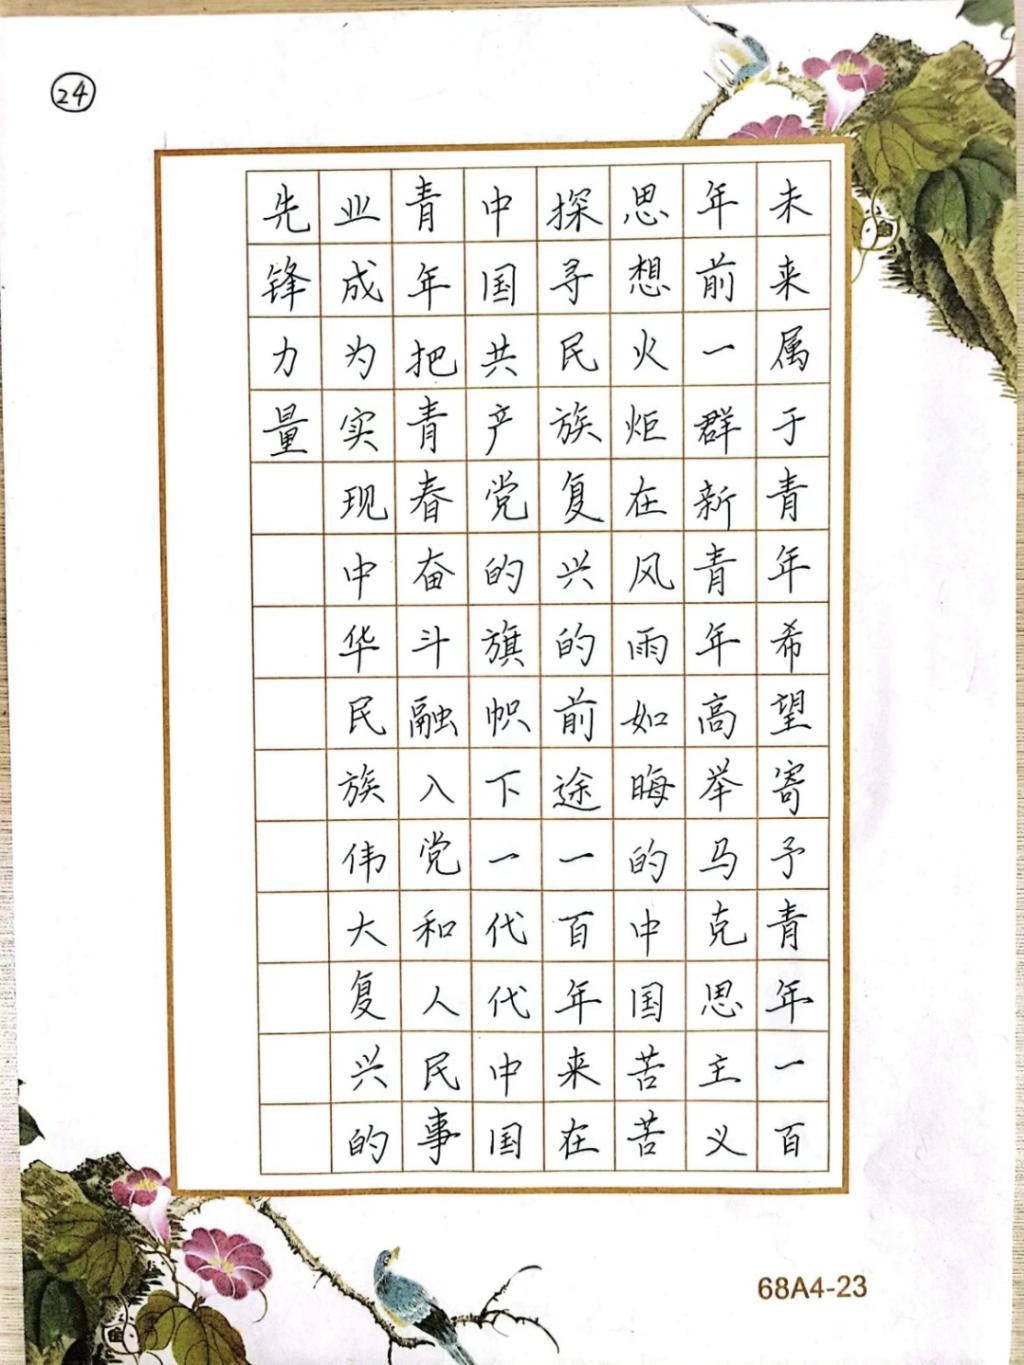 24
未来属于青年希望寄予青年一百
年前一群新青年高举马克思主义
思想火炬在风雨如晦的中国苦苦
探寻民族复兴的前途一百年来在
中国共产党的旗帜下一代代中国
青年把青春奋斗融入党和人民事
业成为实现中华民族伟大复兴的
先锋力量
68A4-23